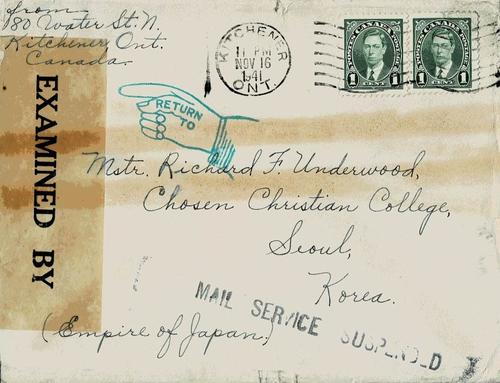 from
180 Water St. N.
Kitchener Ont.
Canada
EXAMINED BY
RETURN
TO
KITCHENER
11 PM
NOV 16
1941
ONT.
POSTES CANADA POSTAGE
1 CENT 1
POSTES CANADA POSTAGE
1 CENT 1
Mstr. Richard F. Underwood,
Chosen Christian College,
Seoul,
Korea.
(Empire of Japan)
MAIL SERVICE SUSPENDED